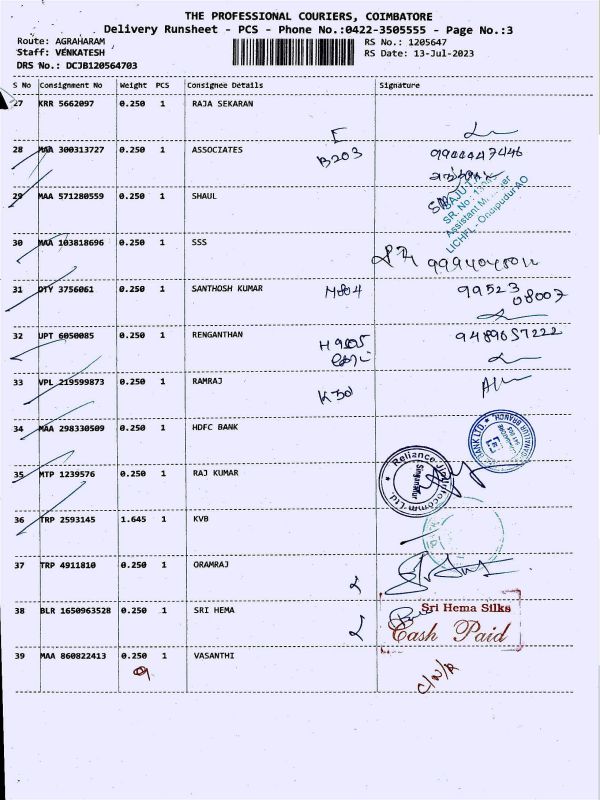 THE PROFESSIONAL COURIERS, COIMBATORE
Delivery Runsheet - PCS - Phone No.:0422-3505555 - Page No.:3
Route: AGRAHARAM RS No.: 1205647
Staff: VENKATESH RS Date: 13-Jul-2023
DRS No.: DCJB120564703
S No Consignment No Weight PCS Consignee Details Signature
27 KRR 5662097 0.250 1 RAJA SEKARAN
28 MAA 300313727 0.250 1 ASSOCIATES B203 9944447446
29 MAA 571280559 0.250 1 SHAUL
SAJU T.A
Assistant Manager
LICHFL - Ondipudur AO
30 MAA 103818696 0.250 1 SSS
31 DTY 3756061 0.250 1 SANTHOSH KUMAR M804 99523
08007
32 UPT 6050085 0.250 1 RENGANTHAN 9489657222
33 VPL 219599873 0.250 1 RAMRAJ K30
34 MAA 298330509 0.250 1 HDFC BANK
BANK LTD.
BRANCH
35 MTP 1239576 0.250 1 RAJ KUMAR
Reliance Jio Infocomm Ltd
Singanallur
36 TRP 2593145 1.645 1 KVB
37 TRP 4911810 0.250 1 ORAMRAJ
38 BLR 1650963528 0.250 1 SRI HEMA
Sri Hema Silks
Cash Paid
39 MAA 860822413 0.250 1 VASANTHI
C/N/R